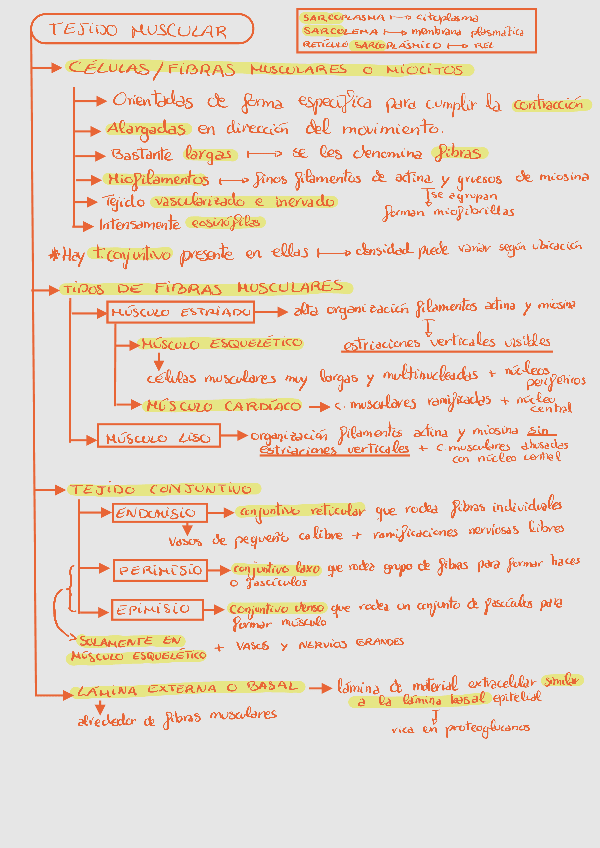 TEJIDO MUSCULAR
SARCOPLASMA ↦ citoplasma
SARCOLEMA ↦ membrana plasmática
RETÍCULO SARCOPLÁSMICO ↦ REL
CÉLULAS/FIBRAS MUSCULARES O MIOCITOS
Orientadas de forma específica para cumplir la contracción
Alargadas en dirección del movimiento.
Bastante largas ↦ se les denomina fibras
Miofilamentos ↦ finos filamentos de actina y gruesos de miosina
Tejido vascularizado e inervado
se agrupan
forman miofibrillas
Intensamente eosinófilas
*Hay t.conjuntivo presente en ellas ↦ densidad puede variar según ubicación
TIPOS DE FIBRAS MUSCULARES
MÚSCULO ESTRIADO → alta organización filamentos actina y miosina
MÚSCULO ESQUELÉTICO
estriaciones verticales visibles
células musculares muy largas y multinucleadas + núcleos
periféricos
MÚSCULO CARDÍACO → c. musculares ramificadas + núcleo
central
MÚSCULO LISO → organización filamentos actina y miosina sin
estriaciones verticales + c musculares ahusadas
con núcleo central
TEJIDO CONJUNTIVO
ENDOMISIO → conjuntivo reticular que rodea fibras individuales
vasos de pequeño calibre + ramificaciones nerviosas libres
PERIMISIO → conjuntivo laxo que rodea grupo de fibras para formar haces
o fascículos
EPIMISIO → conjuntivo denso que rodea un conjunto de fascículos para
formar músculo
SOLAMENTE EN
MÚSCULO ESQUELÉTICO + VASOS Y NERVIOS GRANDES
LÁMINA EXTERNA O BASAL → lámina de material extracelular similar
a la lámina basal epitelial
alrededor de fibras musculares
rica en proteoglucanos